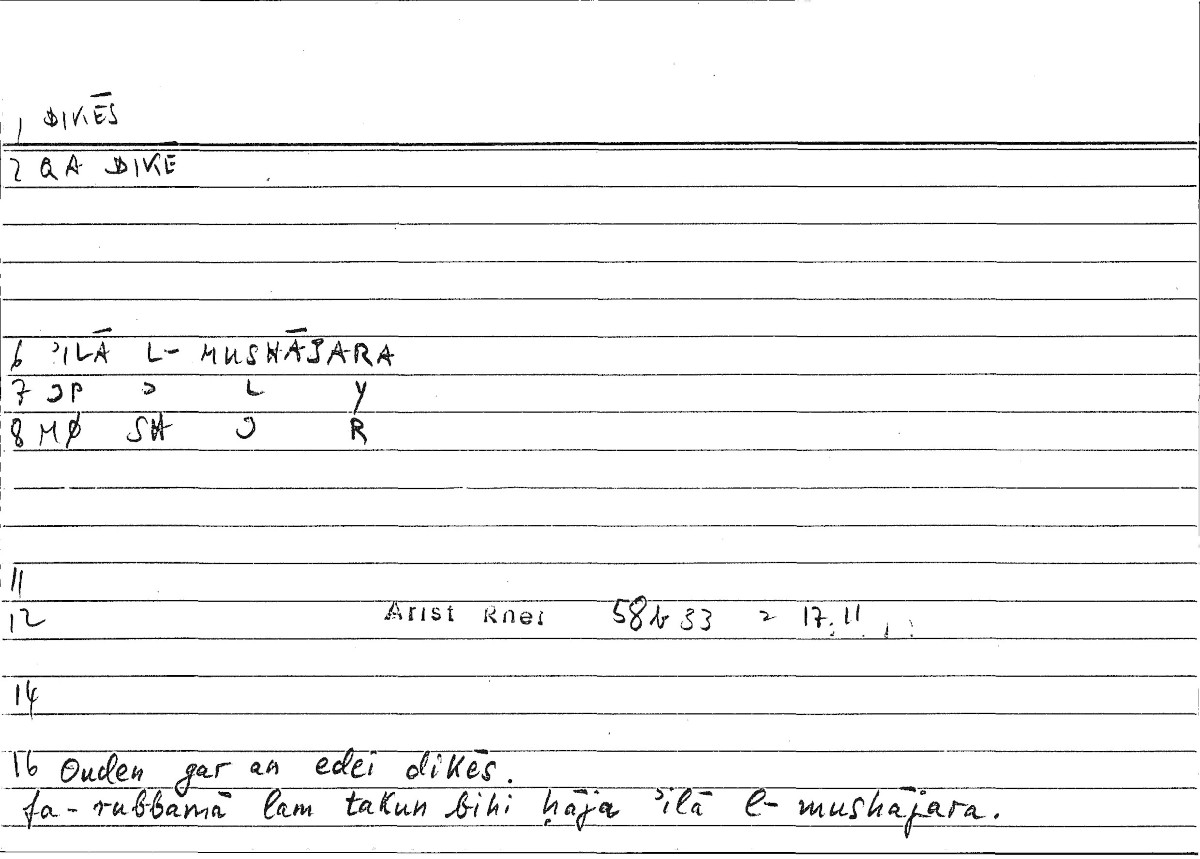 1 DIKĒS
2 QA DIKE
6 ʾILĀ L- MUSHĀJARA
7 JP J L Y
8 MØ SH J R
11
12 Arist Rhet 58b33 = 17.11
14
16 Ouden gar an edei dikēs.
fa-rubbamā lam takun bihi ḥāja ʾilā l-mushājara.